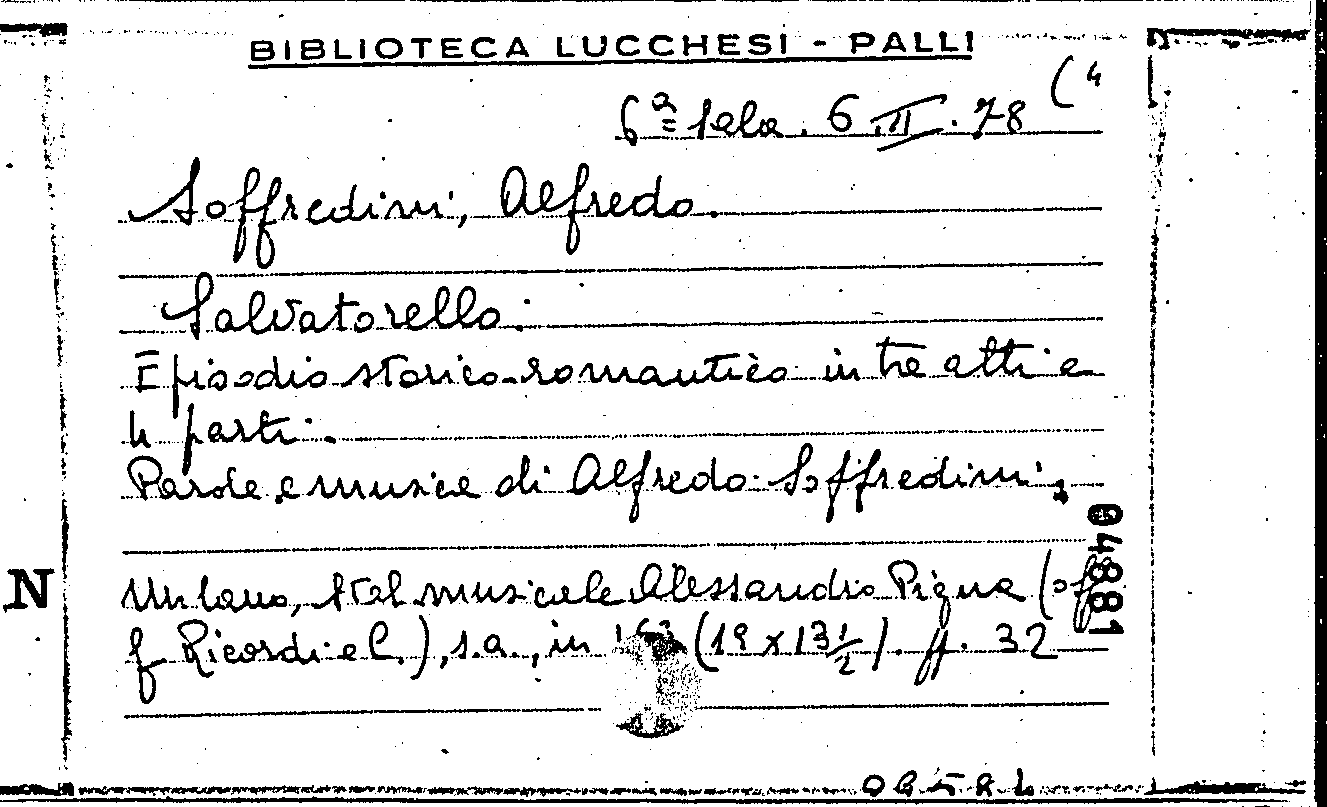 BIBLIOTECA LUCCHESI - PALLI
6ª Sala. 6 III. 78 (4
Soffredini, Alfredo.
Salvatorello.
Episodio storico-romantico in tre atti e
4 parti.
Parole e musica di Alfredo Soffredini.
Milano, Stab. musicale Alessandro Pigna (off
G Ricordi e C.), s.a., in 16º (19 x 13 1/2). pp. 32
N
048819